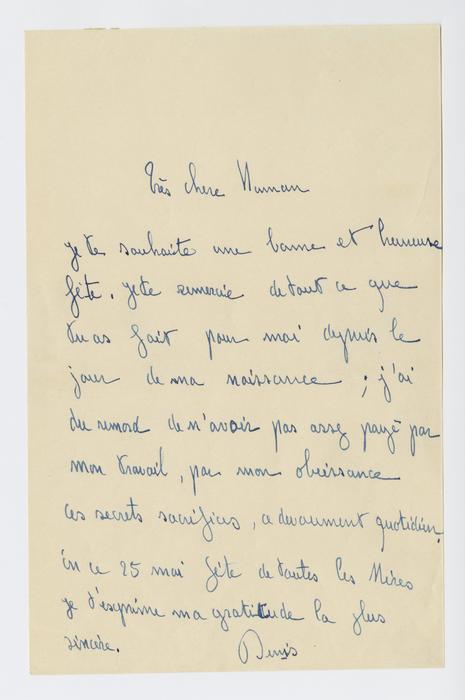 Très chere Maman
je te souhaite une bonne et heureuse
fête. je te remercie de tout ce que
tu as fait pour moi depuis le
jour de ma naissance ; j'ai
du remord de n'avoir pas assez payé par
mon travail, par mon obéissance
ces secrets sacrifices, ce devoument quotidien.
En ce 25 mai fête de toutes les Mères
je t'exprime ma gratitude la plus
sincère.
Denis